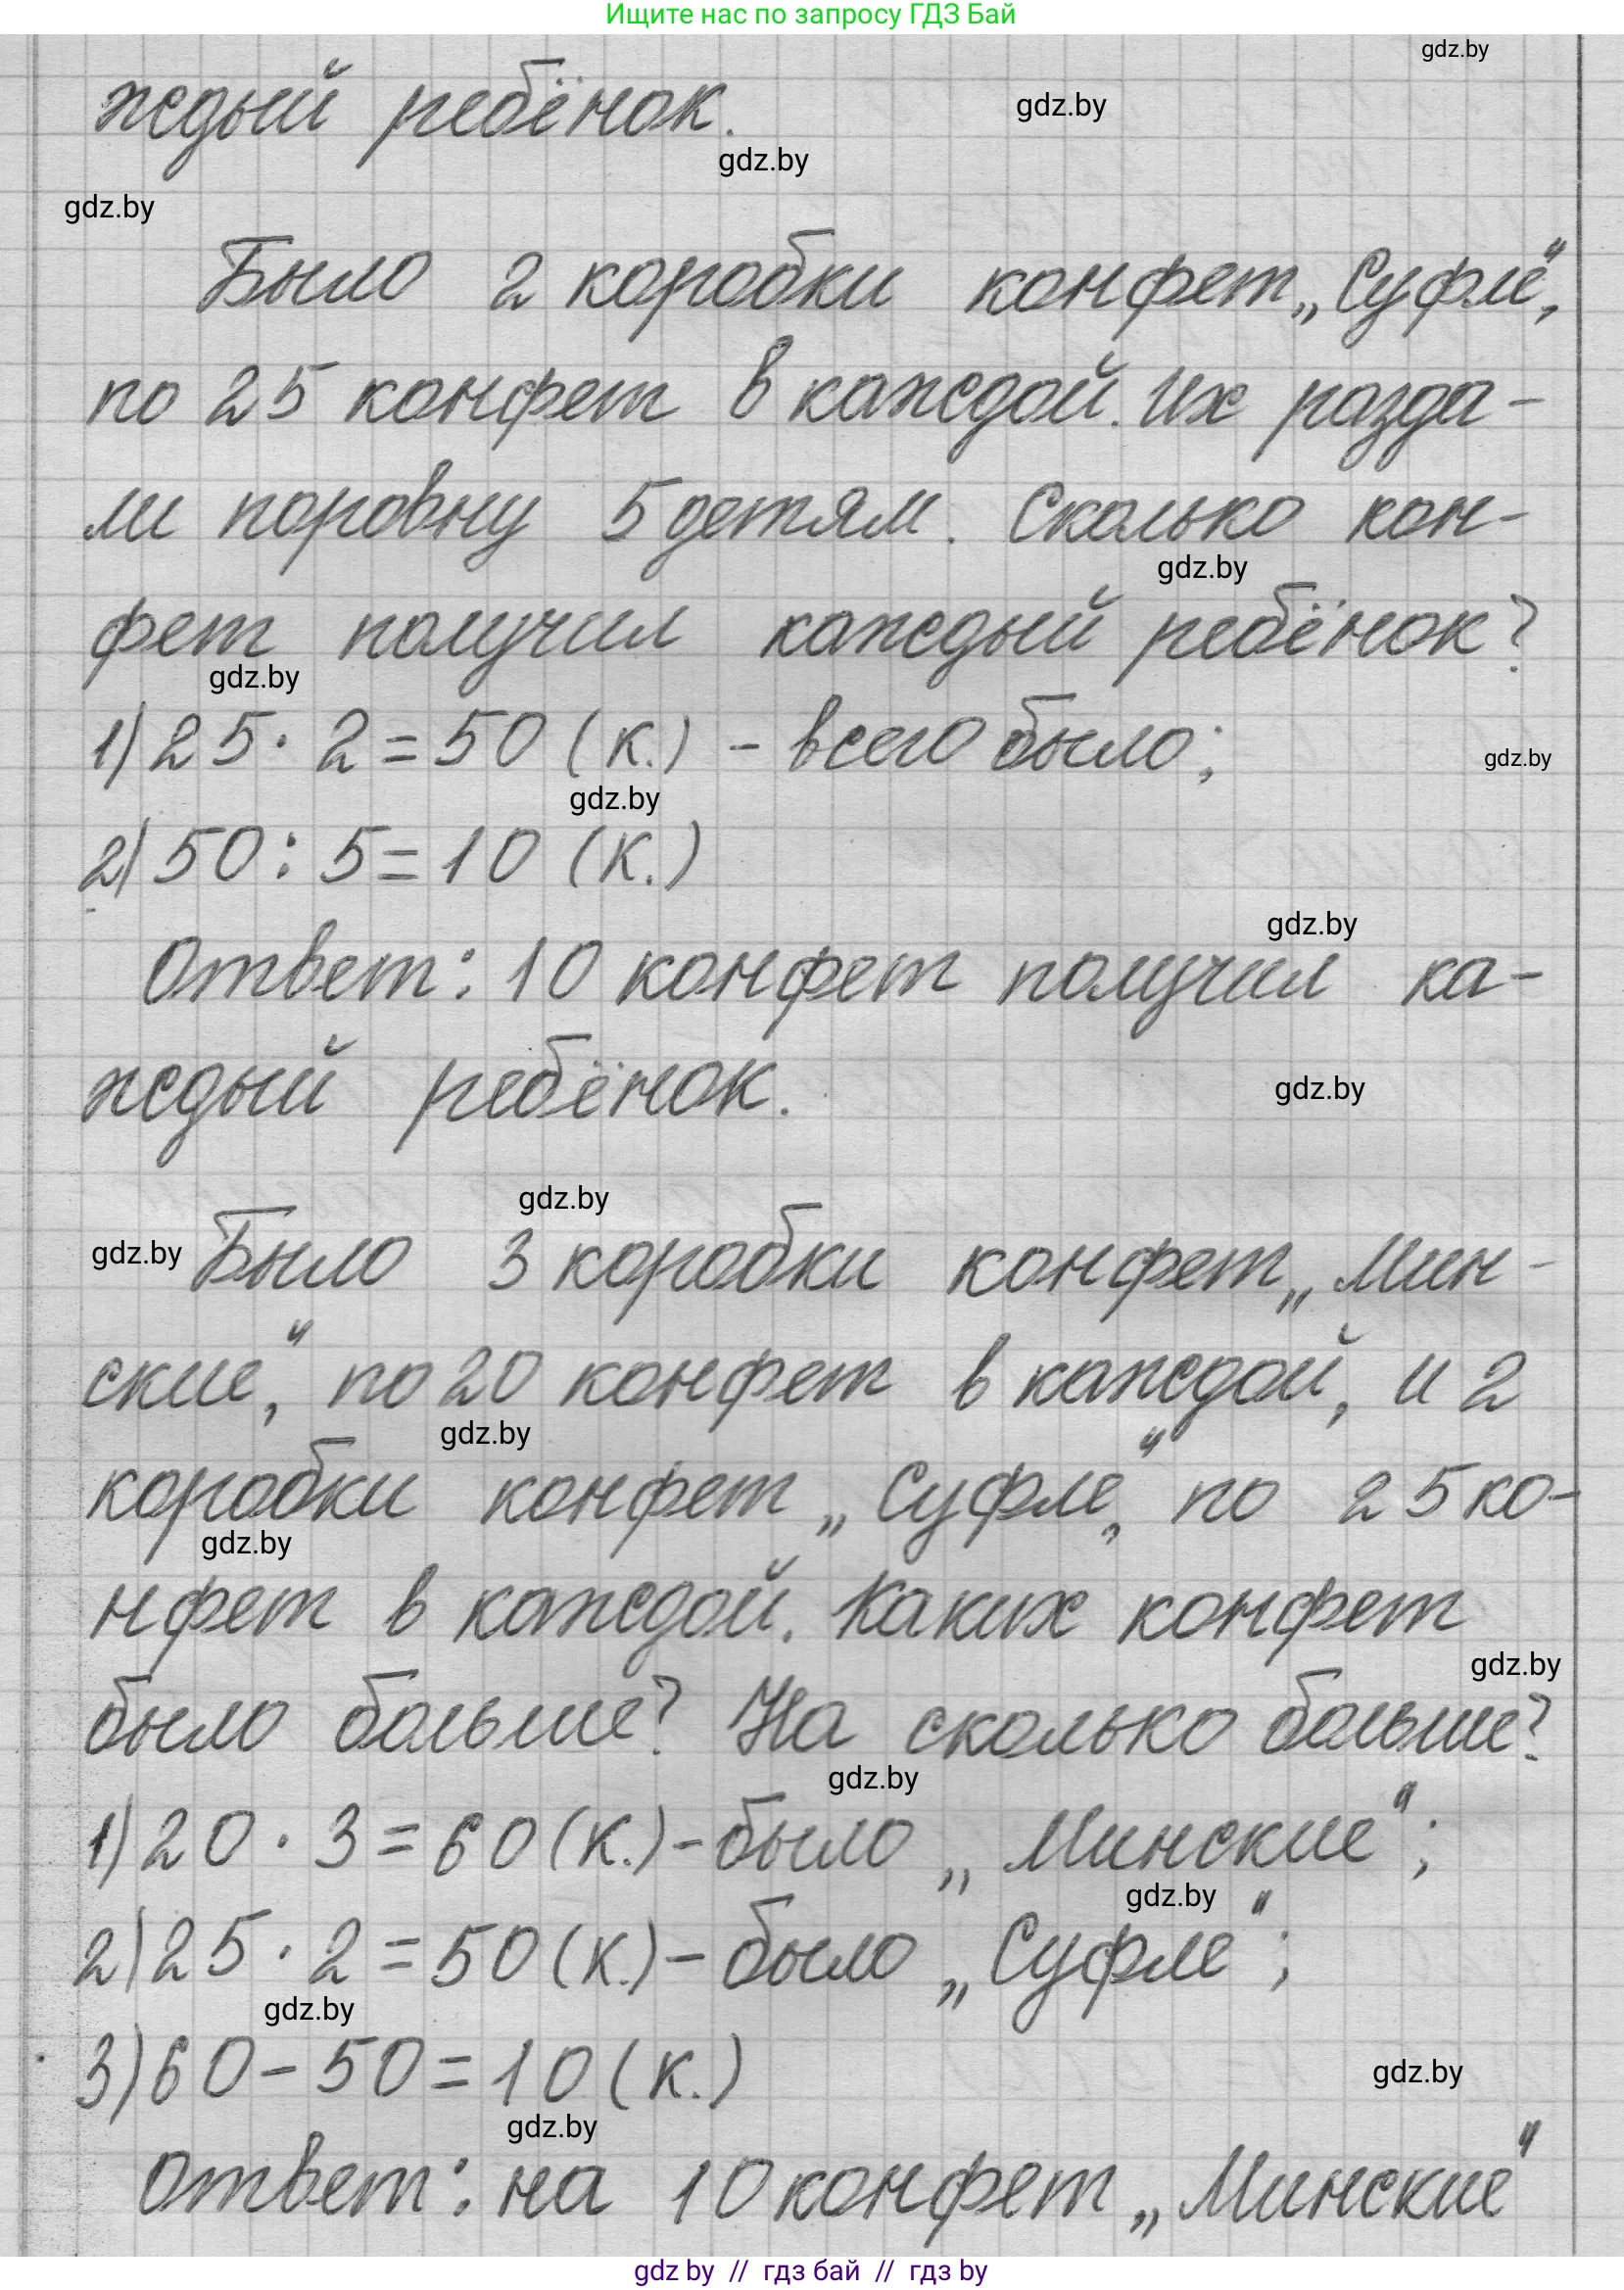 Ищите нас по запросу ГДЗ Бай
gdz.by
ждый ребёнок.
gdz.by
gdz.by
gdz.by
Было 2 коробки конфет „Суфле",
по 25 конфет в каждой. Их разда-
ли поровну 5 детям. Сколько кон-
gdz.by
фет получил каждый ребёнок?
gdz.by
1) 25 · 2 = 50 (к.) - всего было;
gdz.by
gdz.by
2) 50 : 5 = 10 (к.)
gdz.by
Ответ: 10 конфет получил ка-
ждый ребёнок.
gdz.by
gdz.by
gdz.by
Было 3 коробки конфет „Мин-
ские", по 20 конфет в каждой, и 2
gdz.by
коробки конфет „Суфле", по 25 ко-
gdz.by
нфет в каждой. Каких конфет
gdz.by
было больше? На сколько больше?
gdz.by
1) 20 · 3 = 60 (к.) - было „Минские";
gdz.by
2) 25 · 2 = 50 (к.) - было „Суфле";
gdz.by
3) 60 - 50 = 10 (к.)
gdz.by
gdz.by
Ответ: на 10 конфет „Минские"
gdz by // гдз бай // гдз by